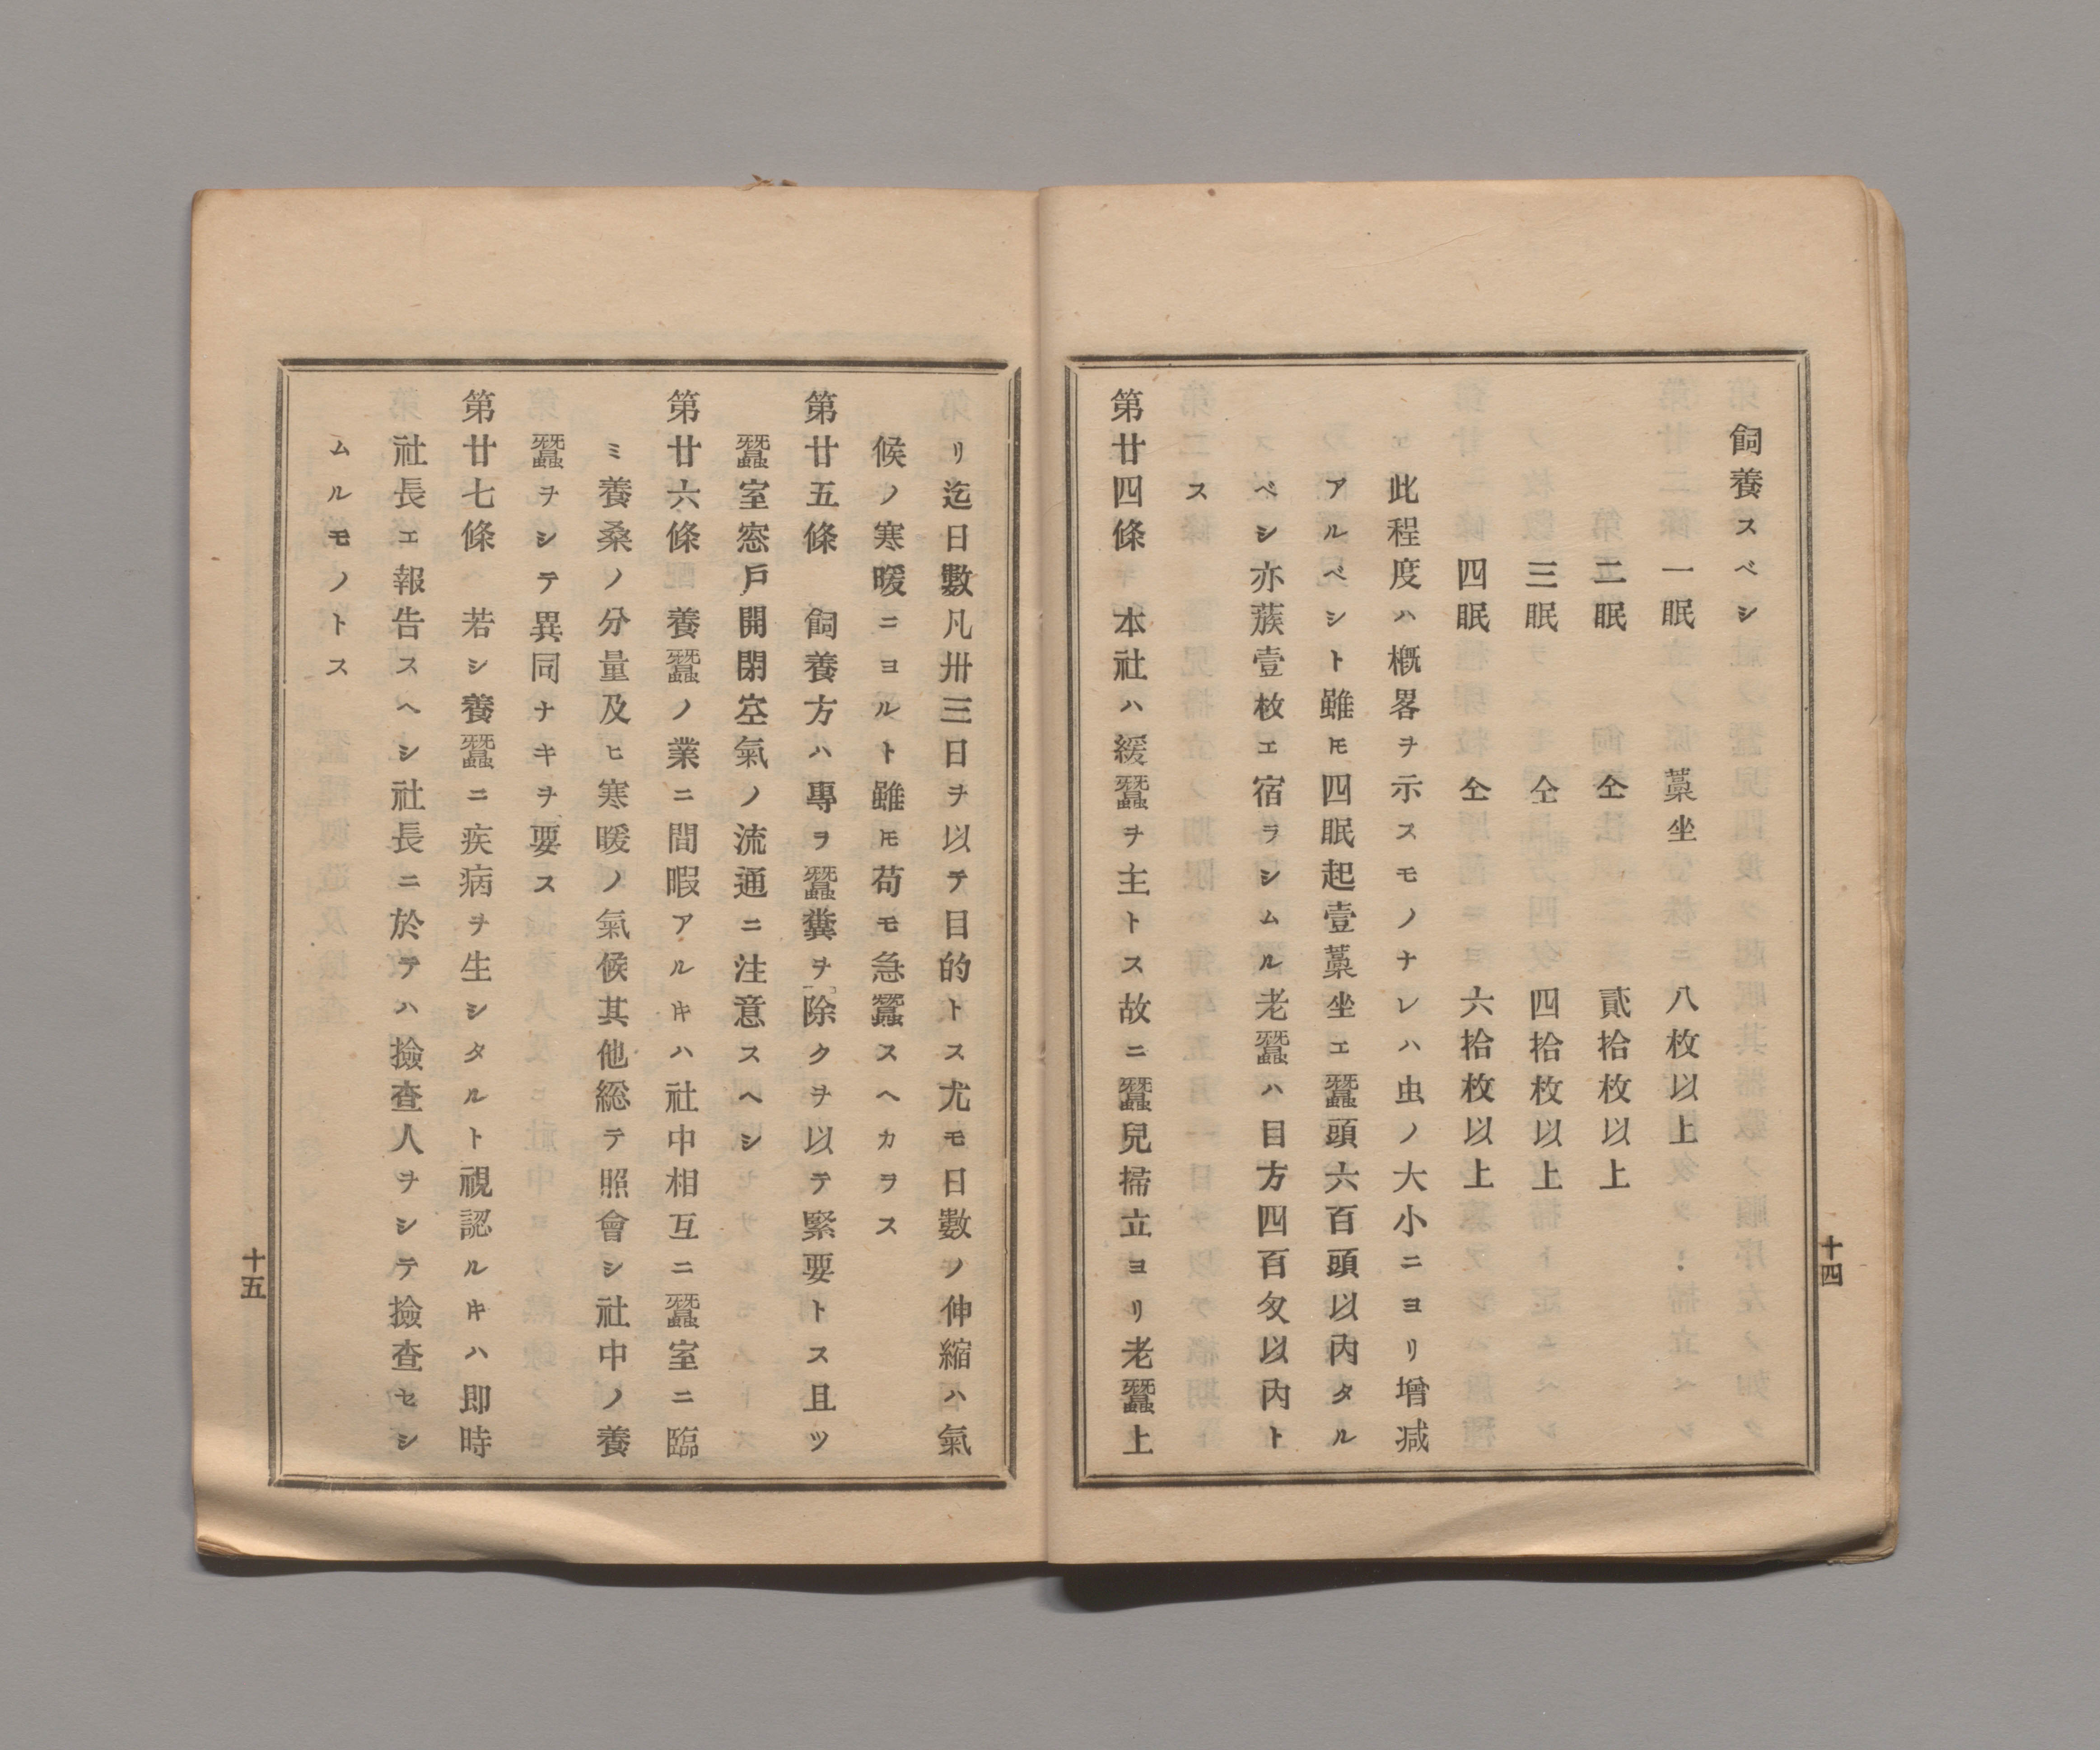 飼養スベシ
一眠　藁坐　八枚以上
二眠　仝　貳拾枚以上
三眠　仝　四拾枚以上
四眠　仝　六拾枚以上
此程度ハ概畧ヲ示スモノナレハ虫ノ大小ニヨリ増減
アルベシト雖𪜈四眠起壹藁坐エ蠶頭六百頭以內タル
ベシ亦蔟壹枚エ宿ラシムル老蠶ハ目方四百匁以內ト
ス
第廿四條　本社ハ緩蠶ヲ主トス故ニ蠶兒掃立ヨリ老蠶上
十四
リ迄日數凡丗三日ヲ以テ目的トス尤モ日數ノ伸縮ハ氣
候ノ寒暖ニヨルト雖𪜈苟モ急蠶スヘカラス
第廿五條　飼養方ハ專ラ蠶糞ヲ除クヲ以テ緊要トス且ツ
蠶室窓戶開閉空氣ノ流通ニ注意スヘシ
第廿六條　養蠶ノ業ニ間暇アルキハ社中相互ニ蠶室ニ臨
ミ養桑ノ分量及ヒ寒暖ノ氣候其他総テ照會シ社中ノ養
蠶ヲシテ異同ナキヲ要ス
第廿七條　若シ養蠶ニ疾病ヲ生シタルト視認ルキハ即時
社長エ報告スヘシ社長ニ於テハ撿查人ヲシテ撿查セシ
ムルモノトス
十五